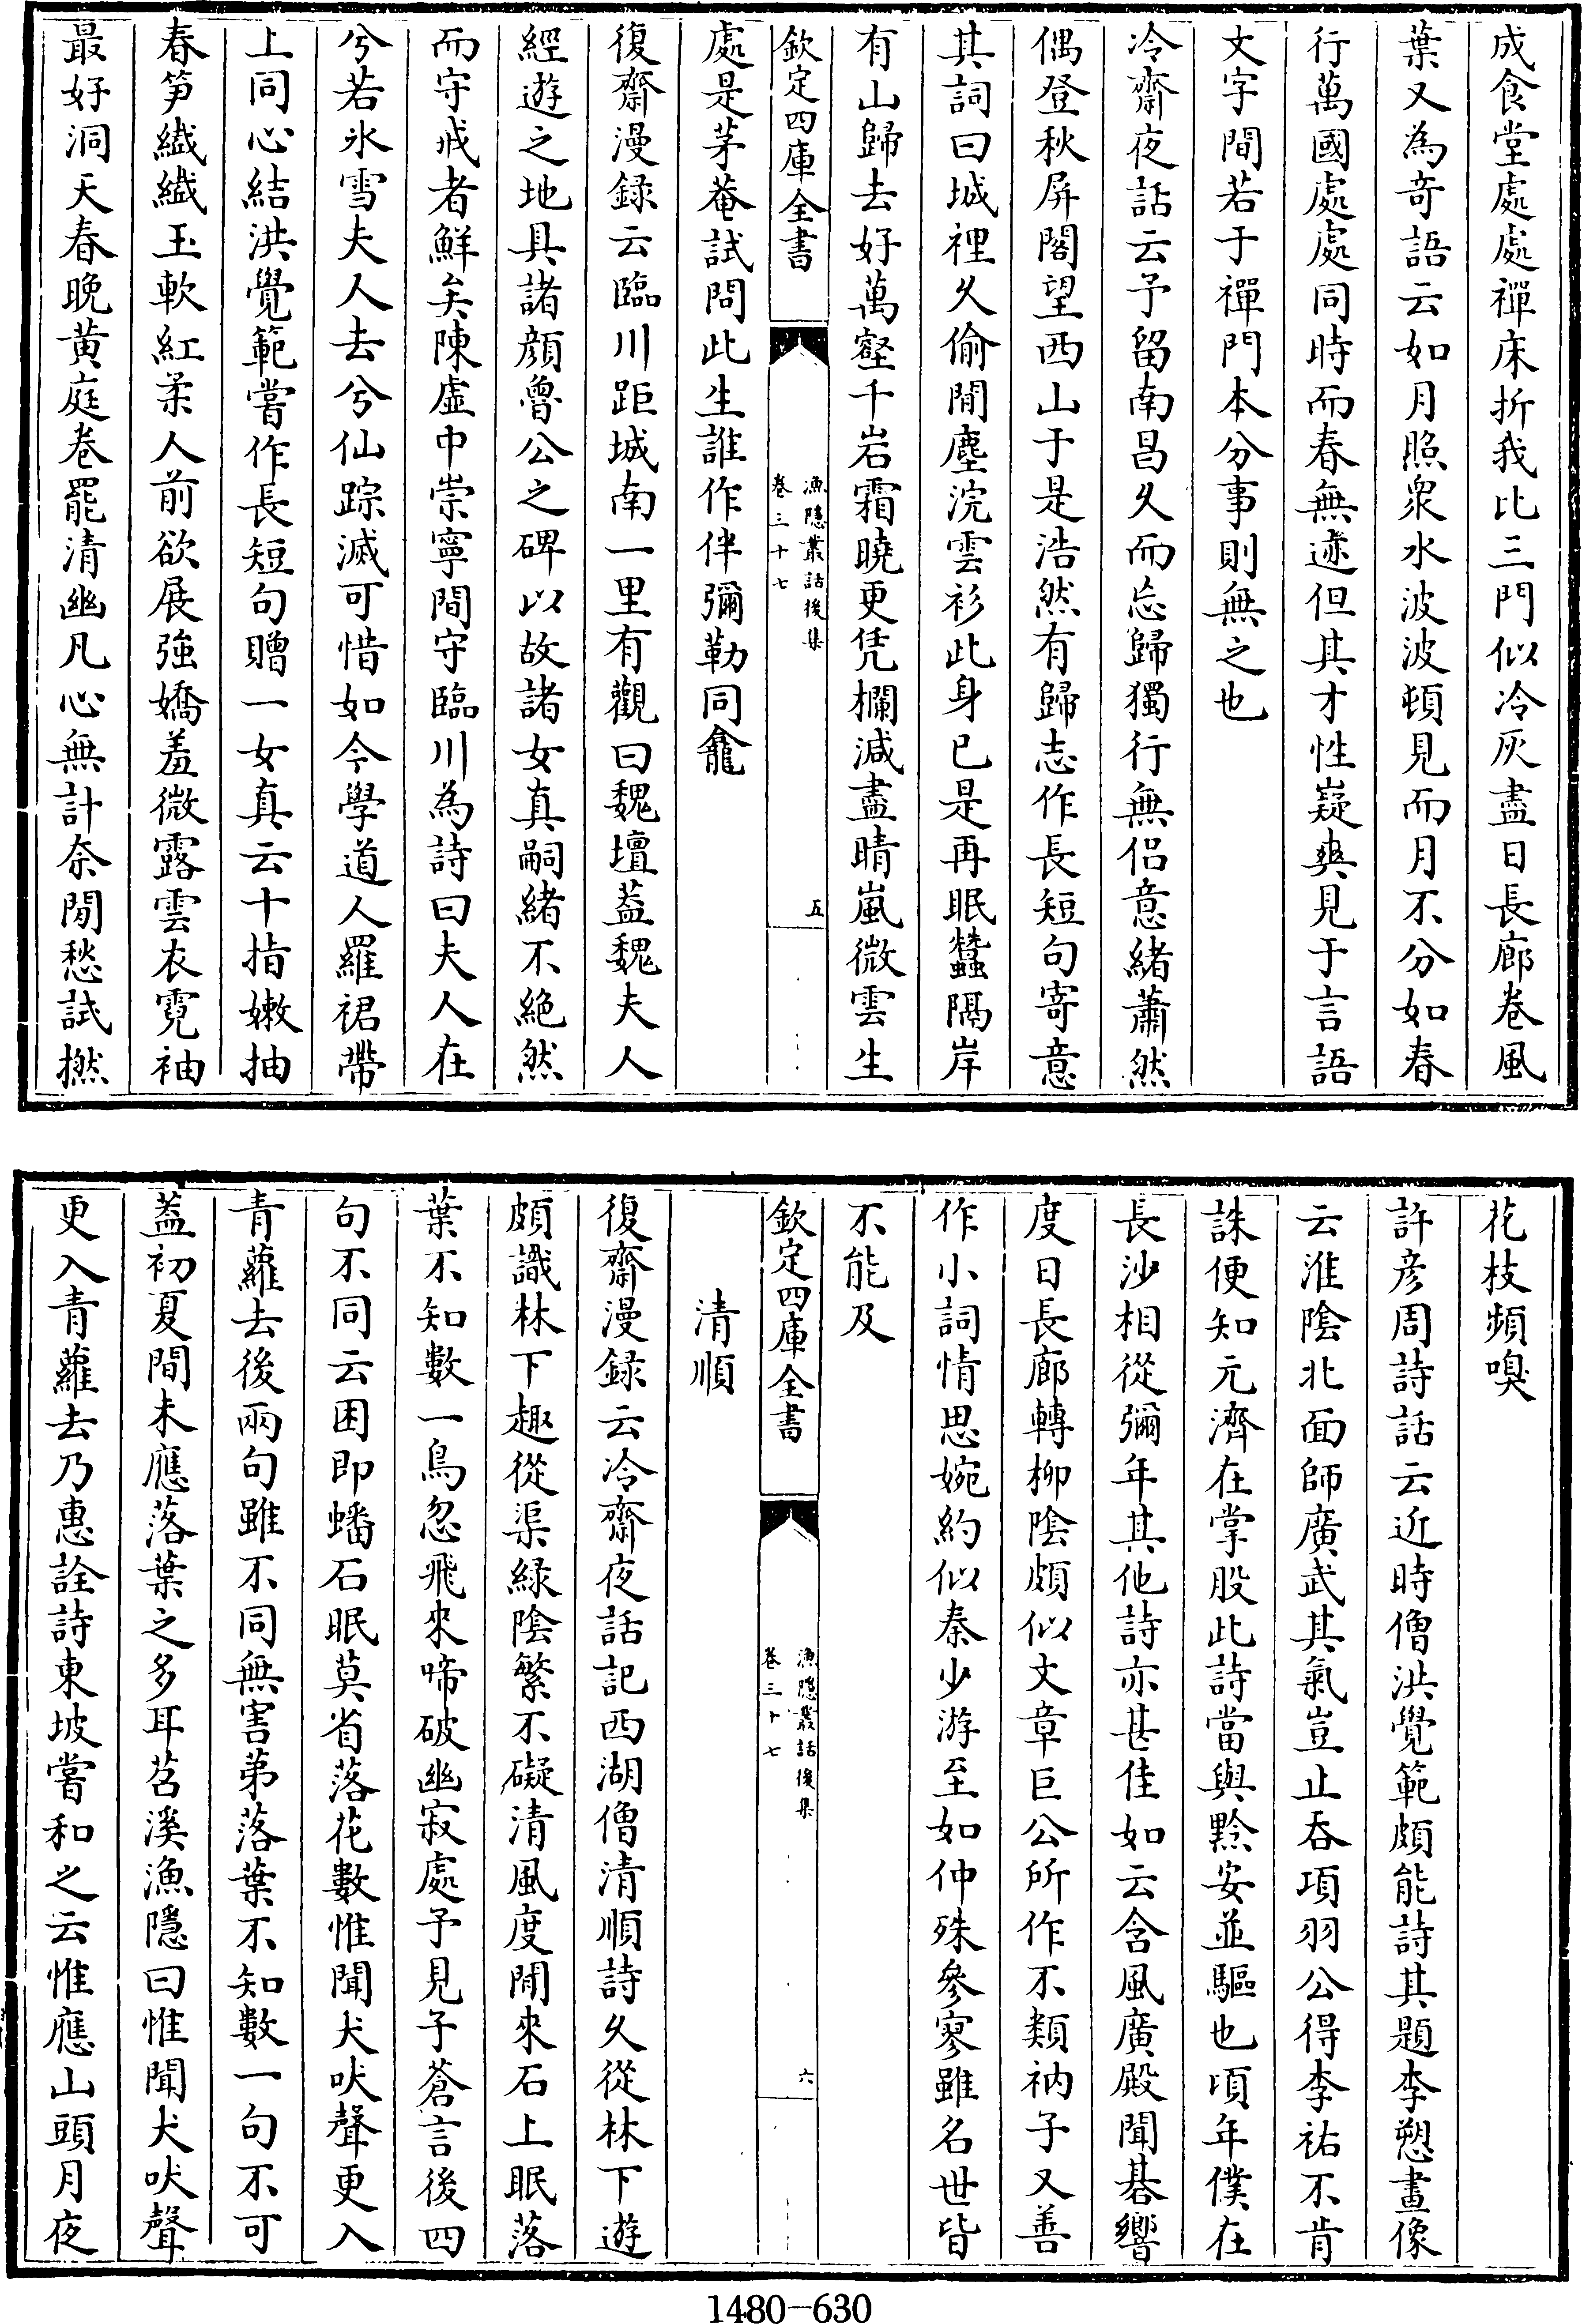 成食堂處處禪床折我比三門似冷灰盡日長廊卷風
葉又為奇語云如月照衆水波波頓見而月不分如春
行萬國處處同時而春無迹但其才性嶷爽見于言語
文字間若于禪門本分事則無之也
冷齋夜話云予留南昌久而忘歸獨行無侣意緒蕭然
偶登秋屏閣望西山于是浩然有歸志作長短句寄意
其詞曰城裡久偷閒塵浣雲衫此身已是再眠蠶隔岸
有山歸去好萬壑千岩霜曉更凭欄減盡晴嵐微雲生
欽定四庫全書
漁隱叢話後集
卷三十七
五
處是茅菴試問此生誰作伴彌勒同龕
復齋漫録云臨川距城南一里有觀曰魏壇葢魏夫人
經遊之地具諸顔魯公之碑以故諸女真嗣緒不絶然
而守戒者鮮矣陳虛中崇寧間守臨川為詩曰夫人在
兮若氷雪夫人去兮仙踪滅可惜如今學道人羅裙帶
上同心結洪覺範嘗作長短句贈一女真云十指嫩抽
春笋纎纎玉軟紅柔人前欲展強嬌羞微露雲衣霓袖
最好洞天春晚黄庭卷罷清幽凡心無計奈閒愁試撚
花枝頻嗅
許彦周詩話云近時僧洪覺範頗能詩其題李愬畫像
云淮陰北面師廣武其氣豈止吞項羽公得李祐不肯
誅便知元濟在掌股此詩當與黔安並驅也頃年僕在
長沙相從彌年其他詩亦甚佳如云含風廣殿聞碁響
度日長廊轉柳陰頗似文章巨公所作不類衲子又善
作小詞情思婉約似秦少游至如仲殊參寥雖名世皆
不能及
欽定四庫全書
漁隱叢話後集
卷三十七
六
清順
復齋漫録云冷齋夜話記西湖僧清順詩久從林下遊
頗識林下趣從渠緑陰繁不礙清風度閒來石上眠落
葉不知數一鳥忽飛來啼破幽寂處予見子蒼言後四
句不同云困即蟠石眠莫省落花數惟聞犬吠聲更入
青蘿去後兩句雖不同無害第落葉不知數一句不可
葢初夏間未應落葉之多耳苕溪漁隱曰惟聞犬吠聲
更入青蘿去乃惠詮詩東坡嘗和之云惟應山頭月夜
1480-630